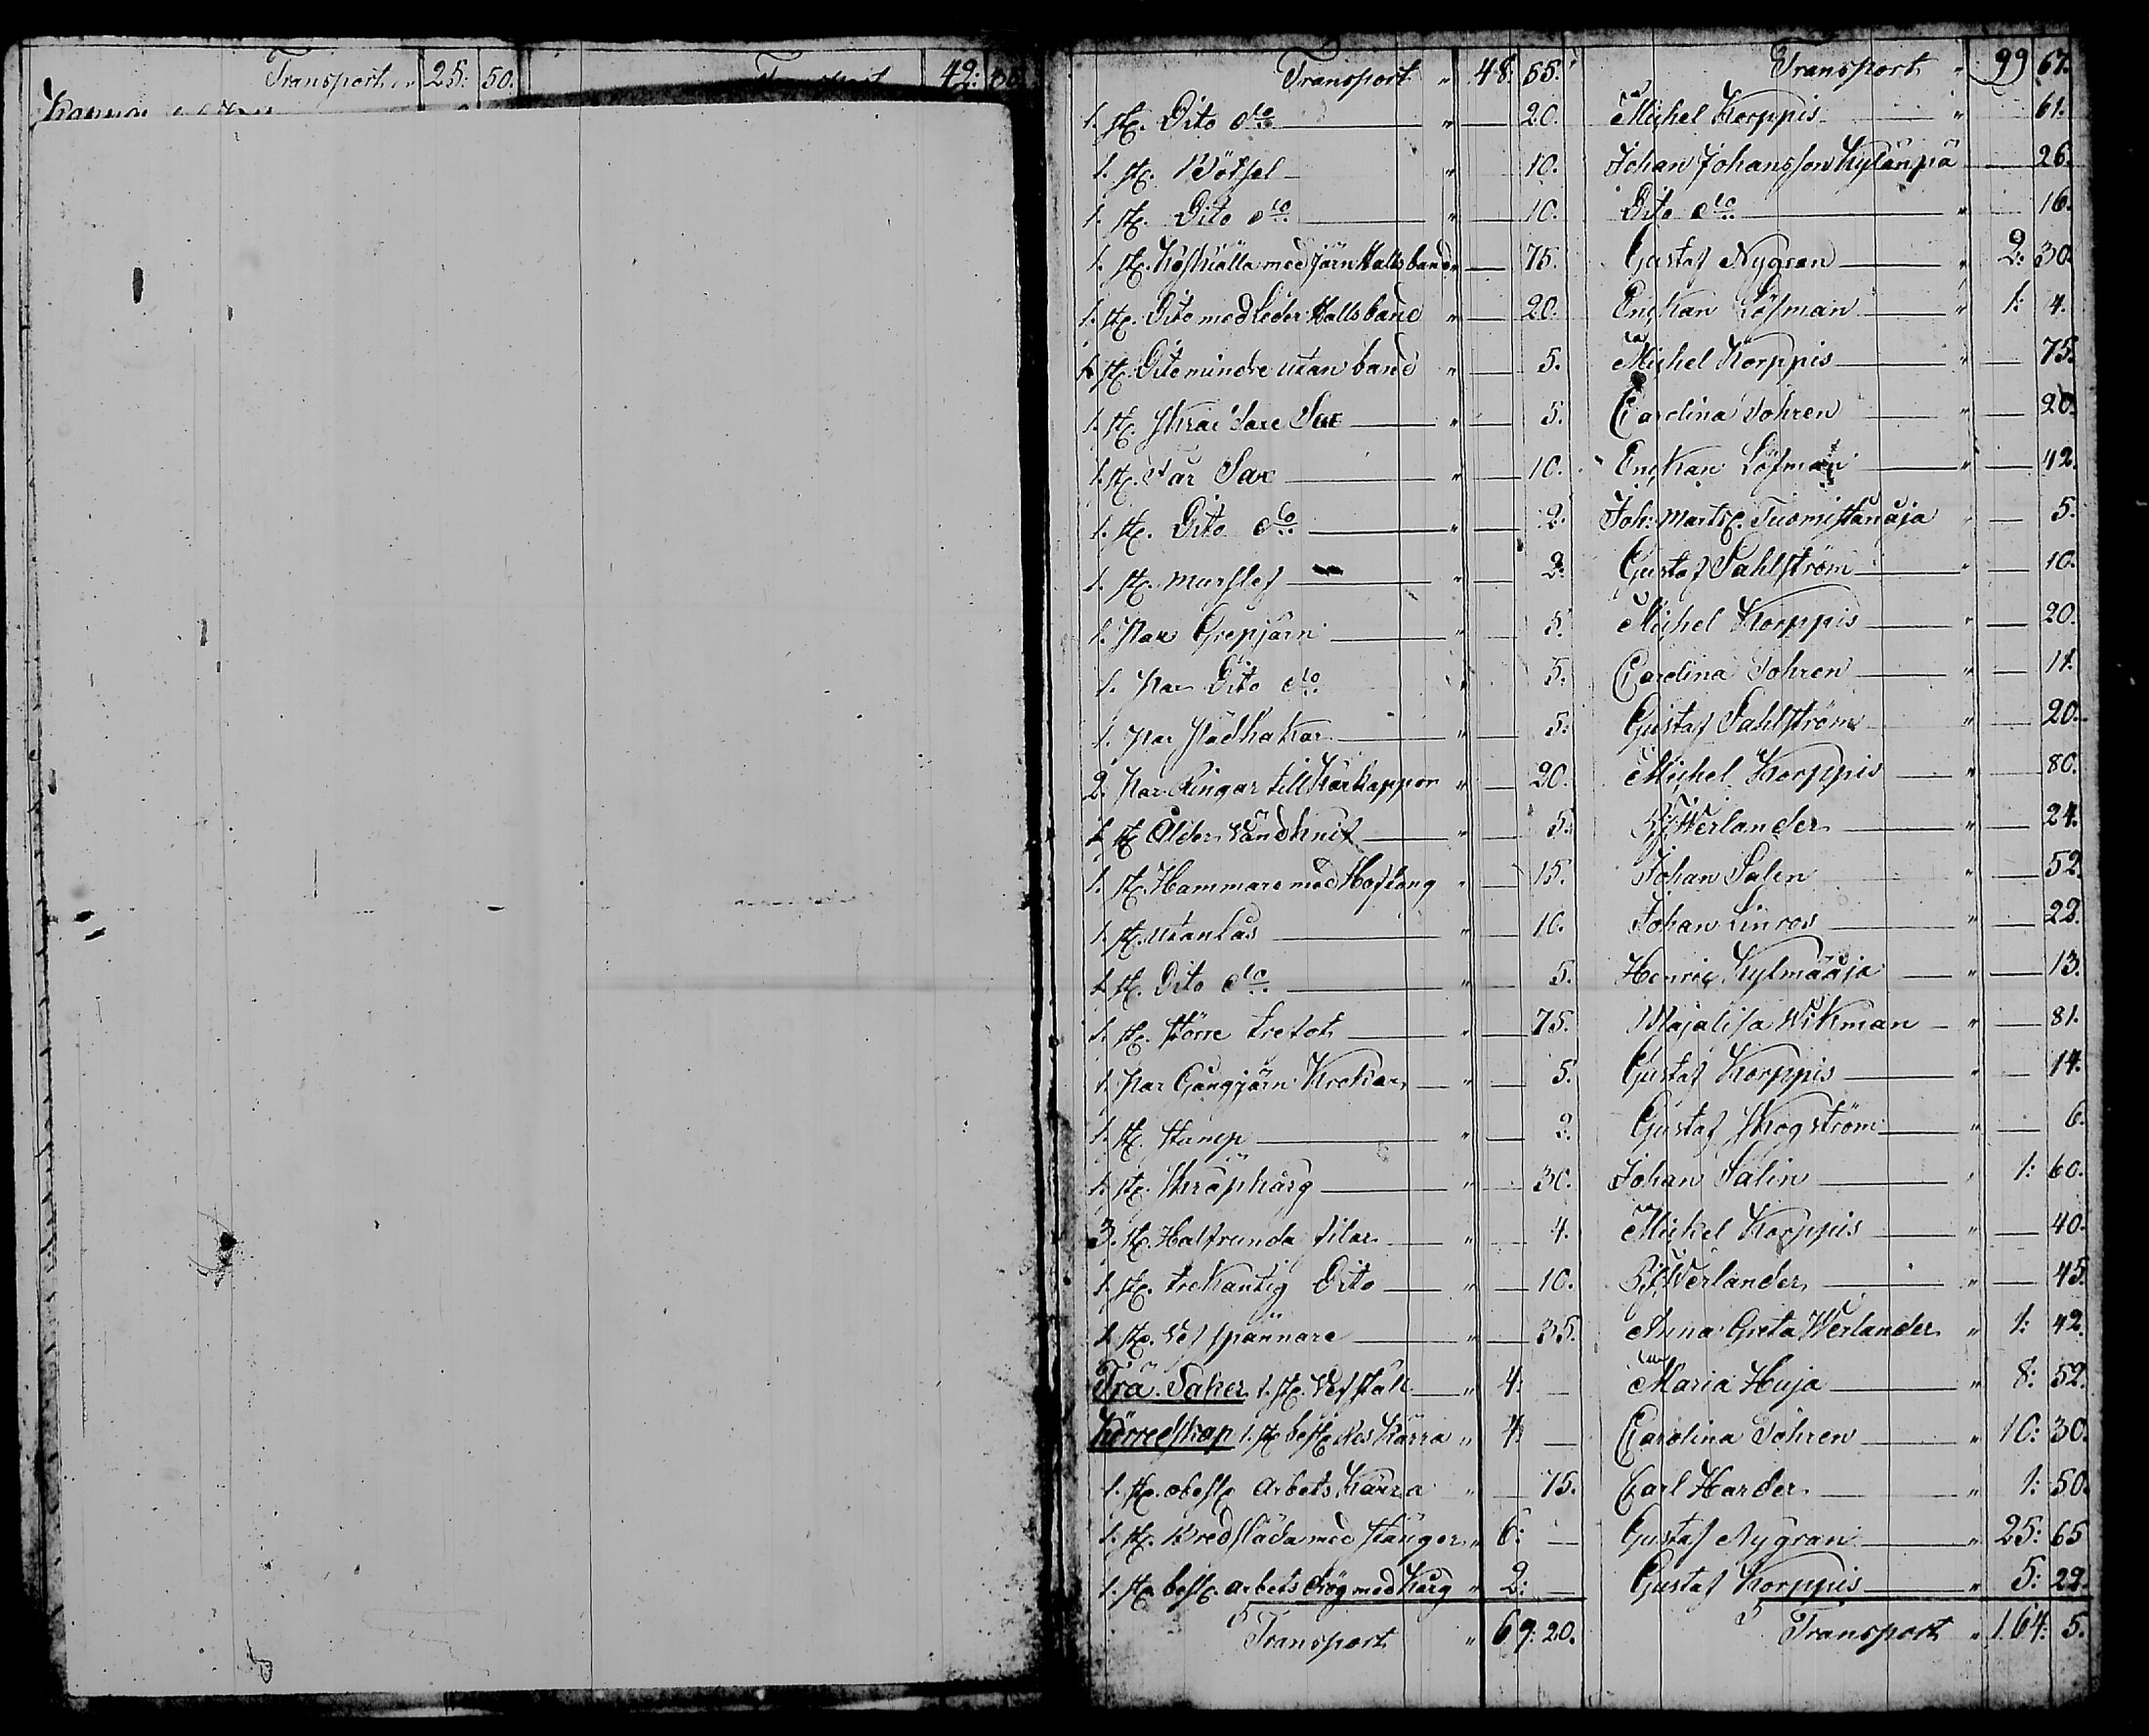 Transport " 25: 50. Transport 42:
Transport " 48: 55. Transport " 99 67.
1. st. Dito do " 20. Michel Korppis " 61.
1. st. Bötsel " 10. Johan Johansson Kylänpä 26.
1. st. Dito do " 10. Dito do " 16.
1. st. Koskiälla med järn Halsband " 75. Gustaf Nygren " 2: 30.
1. st. Dito med Läder Hallsband " 20. Enkan Löfman " 1: 4.
1. st. Dito mindre utan band " 5. Michel Korppis " 75.
1. st. Sax " 5. Carolina Tohren " 20.
1. st. Får Sax " 10. Enkan Löfman " 42.
1. st. Dito do " 2. Joh: Marts. Tuomistanoja 5.
1. st. murslef " 2. Gustaf Sahlström " 10.
1. Par Grepjärn " 5. Michel Korppis " 20.
1. Par Dito do " 5. Carolina Tohren " 11.
1. Par slädhakar " 5. Gustaf Sahlström " 20.
2. Par Ringar till Kärkappor " 20. Michel Korppis " 80.
1. st. Älder Bandknif " 5. Werlander " 24.
1. st. Hammare med Hoftong " 15. Johan Salen " 52.
1. st. utanlås " 10. Johan Linros " 22.
1. st. Dito do " 5. Henric Kylmäoja " 13.
1. st. större trefot " 75. Majalisa Wikman " 81.
1. Par Gångjärn Krokar " 5. Gustaf Korppis " 14.
1. st. stamp " 2. Gustaf Skogström " 6.
1. st. skräpkårg " 30. Johan Salin " 1: 60.
3. st. Halfrunda filar " 4. Mickel Korppis " 40.
1. st. trekantig Dito " 10. Werlander " 45.
1. st. Väf spännare " 35. Anna Greta Werlander " 1: 42.
Trä Saker 1. st. Väfstoll " 4: — Maria Huja " 8: 52.
Körredskap 1. st. besl. Res Kärra " 4: — Carolina Tohren " 10: 30.
1. st. obesl. Arbets Kärra " 75. Carl Harder " 1: 50.
1. st. Bredsläda med stänger " 6: — Gustaf Nygran " 25: 65
1. st. besl. arbets Rög med Kårg " 2: — Gustaf Korppis " 5: 22.
Transport " 69: 20. Transport " 164: 5.